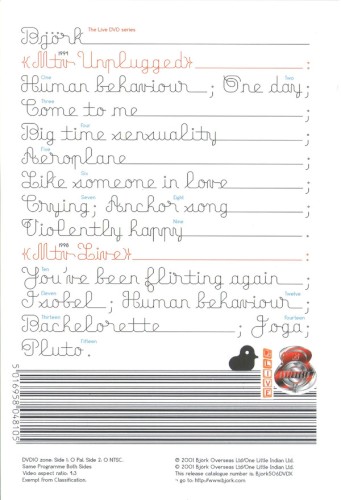 Björk The Live DVD series.
1994
«Mtv Unplugged» ;
One Two
Human behaviour ; One day;
Three
Come to me ;
Four
Big time sensuality ;
Five
Aeroplane ;
Six
Like someone in love ;
Seven Eight
Crying; Anchor song ;
Nine
Violently happy ;
1998
«Mtv Live» ;
Ten
You've been flirting again ;
Eleven Twelve
Isobel ; Human behaviour ;
Thirteen Fourteen
Bachelorette ; Joga;
Fifteen
Pluto.
LIVE
5016958048105
DVD10 zone: Side 1: 0 Pal. Side 2: 0 NTSC.
Same Programme Both Sides
Video aspect ratio: 4:3
Exempt from Classification.
℗ 2001 Björk Overseas Ltd/One Little Indian Ltd.
© 2001 Björk Overseas Ltd/One Little Indian Ltd.
This release catalogue number is: Bjork506DVDX
¬ go to: http://www.bjork.com